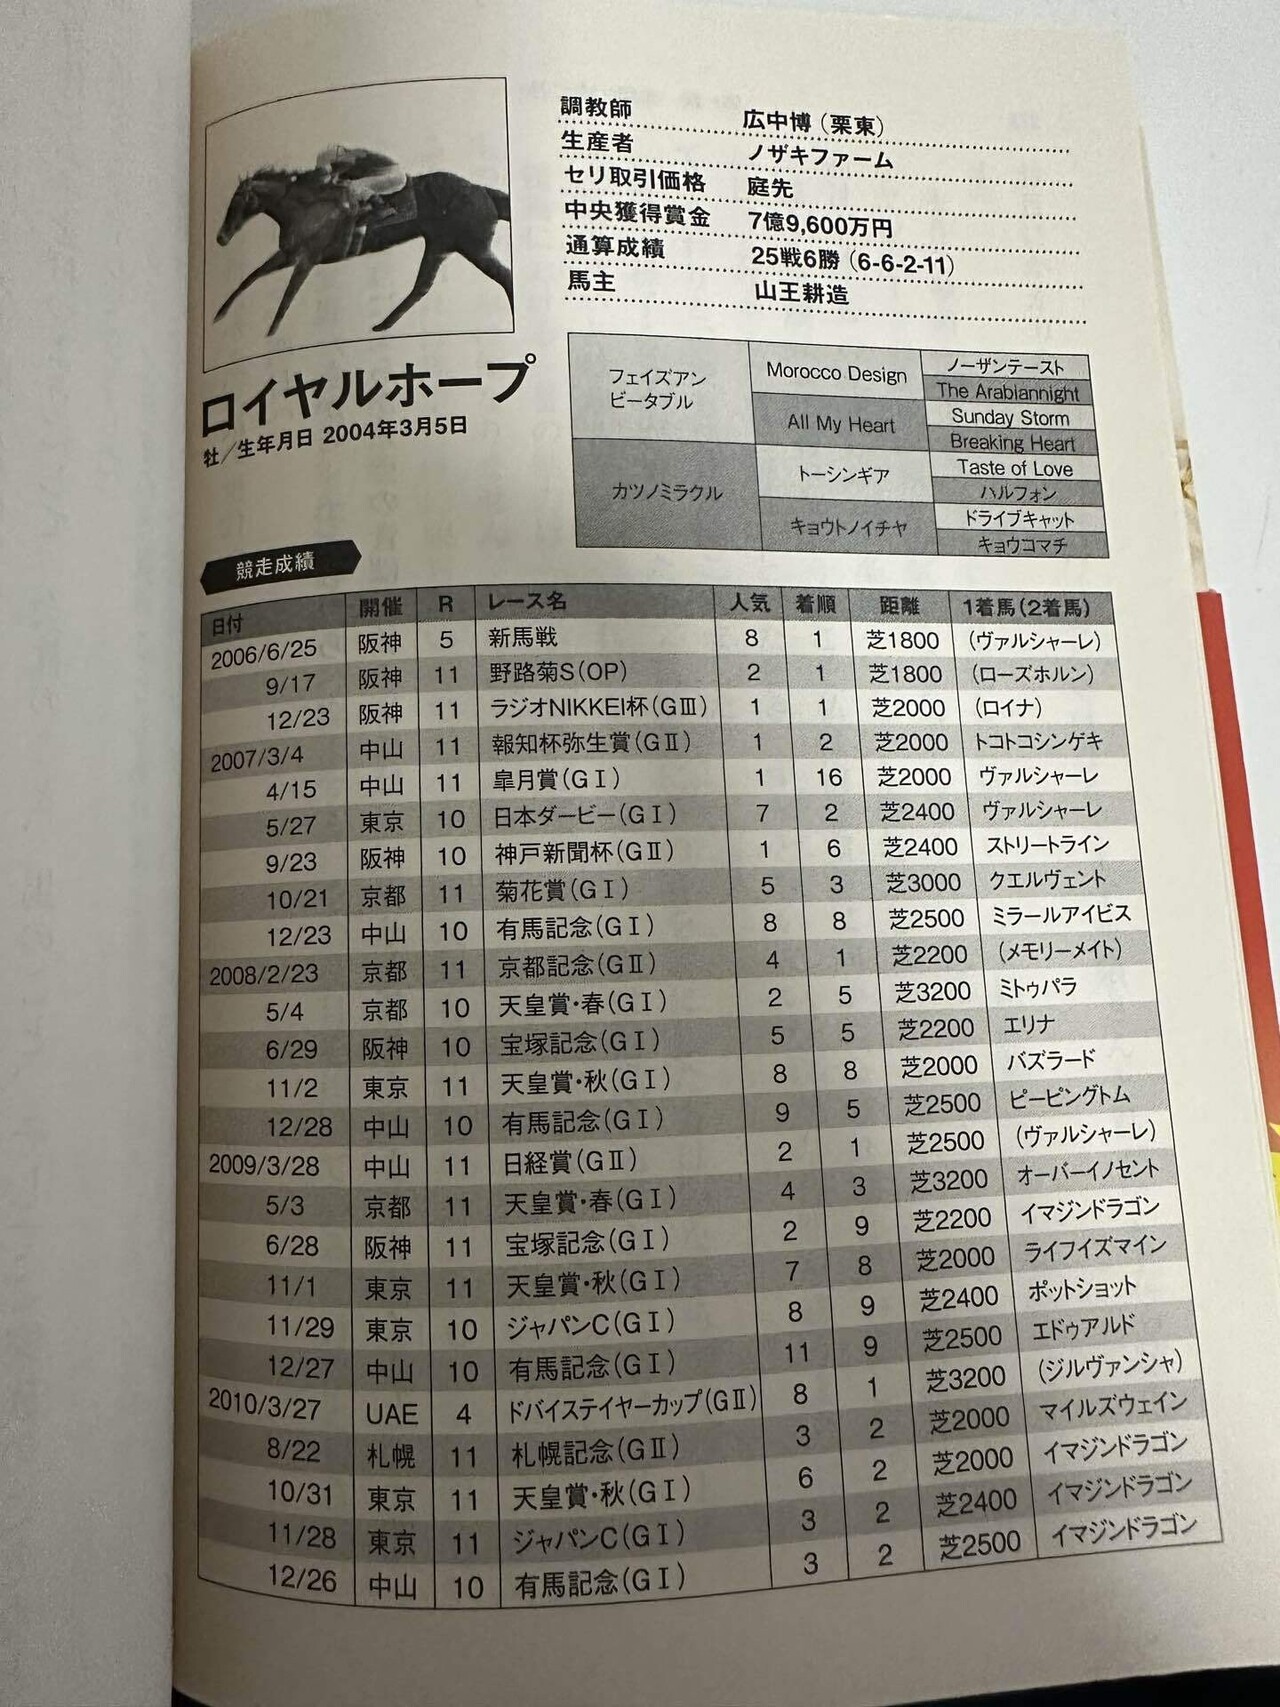 調教師 広中博（栗東）
生産者 ノザキファーム
セリ取引価格 庭先
中央獲得賞金 7億9,600万円
通算成績 25戦6勝（6-6-2-11）
馬主 山王耕造
ロイヤルホープ
牡／生年月日 2004年3月5日
フェイズアンビータブル Morocco Design ノーザンテースト
The Arabiannight
All My Heart Sunday Storm
Breaking Heart
カツノミラクル トーシンギア Taste of Love
ハルフォン
キョウトノイチヤ ドライブキャット
キョウコマチ
競走成績
日付 開催 R レース名 人気 着順 距離 1着馬（2着馬）
2006/6/25 阪神 5 新馬戦 8 1 芝1800 （ヴァルシャーレ）
9/17 阪神 11 野路菊S（OP） 2 1 芝1800 （ローズホルン）
12/23 阪神 11 ラジオNIKKEI杯（GⅢ） 1 1 芝2000 （ロイナ）
2007/3/4 中山 11 報知杯弥生賞（GⅡ） 1 2 芝2000 トコトコシンゲキ
4/15 中山 11 皐月賞（GⅠ） 1 16 芝2000 ヴァルシャーレ
5/27 東京 10 日本ダービー（GⅠ） 7 2 芝2400 ヴァルシャーレ
9/23 阪神 10 神戸新聞杯（GⅡ） 1 6 芝2400 ストリートライン
10/21 京都 11 菊花賞（GⅠ） 5 3 芝3000 クエルヴェント
12/23 中山 10 有馬記念（GⅠ） 8 8 芝2500 ミラールアイビス
2008/2/23 京都 11 京都記念（GⅡ） 4 1 芝2200 （メモリーメイト）
5/4 京都 10 天皇賞・春（GⅠ） 2 5 芝3200 ミトゥパラ
6/29 阪神 10 宝塚記念（GⅠ） 5 5 芝2200 エリナ
11/2 東京 11 天皇賞・秋（GⅠ） 8 8 芝2000 バズラード
12/28 中山 10 有馬記念（GⅠ） 9 5 芝2500 ピーピングトム
2009/3/28 中山 11 日経賞（GⅡ） 2 1 芝2500 （ヴァルシャーレ）
5/3 京都 11 天皇賞・春（GⅠ） 4 3 芝3200 オーバーイノセント
6/28 阪神 11 宝塚記念（GⅠ） 2 9 芝2200 イマジンドラゴン
11/1 東京 11 天皇賞・秋（GⅠ） 7 8 芝2000 ライフイズマイン
11/29 東京 10 ジャパンC（GⅠ） 8 9 芝2400 ポットショット
12/27 中山 10 有馬記念（GⅠ） 11 9 芝2500 エドゥアルド
2010/3/27 UAE 4 ドバイステイヤーカップ（GⅡ） 8 1 芝3200 （ジルヴァンシャ）
8/22 札幌 11 札幌記念（GⅡ） 3 2 芝2000 マイルズウェイン
10/31 東京 11 天皇賞・秋（GⅠ） 6 2 芝2000 イマジンドラゴン
11/28 東京 11 ジャパンC（GⅠ） 3 2 芝2400 イマジンドラゴン
12/26 中山 10 有馬記念（GⅠ） 3 2 芝2500 イマジンドラゴン